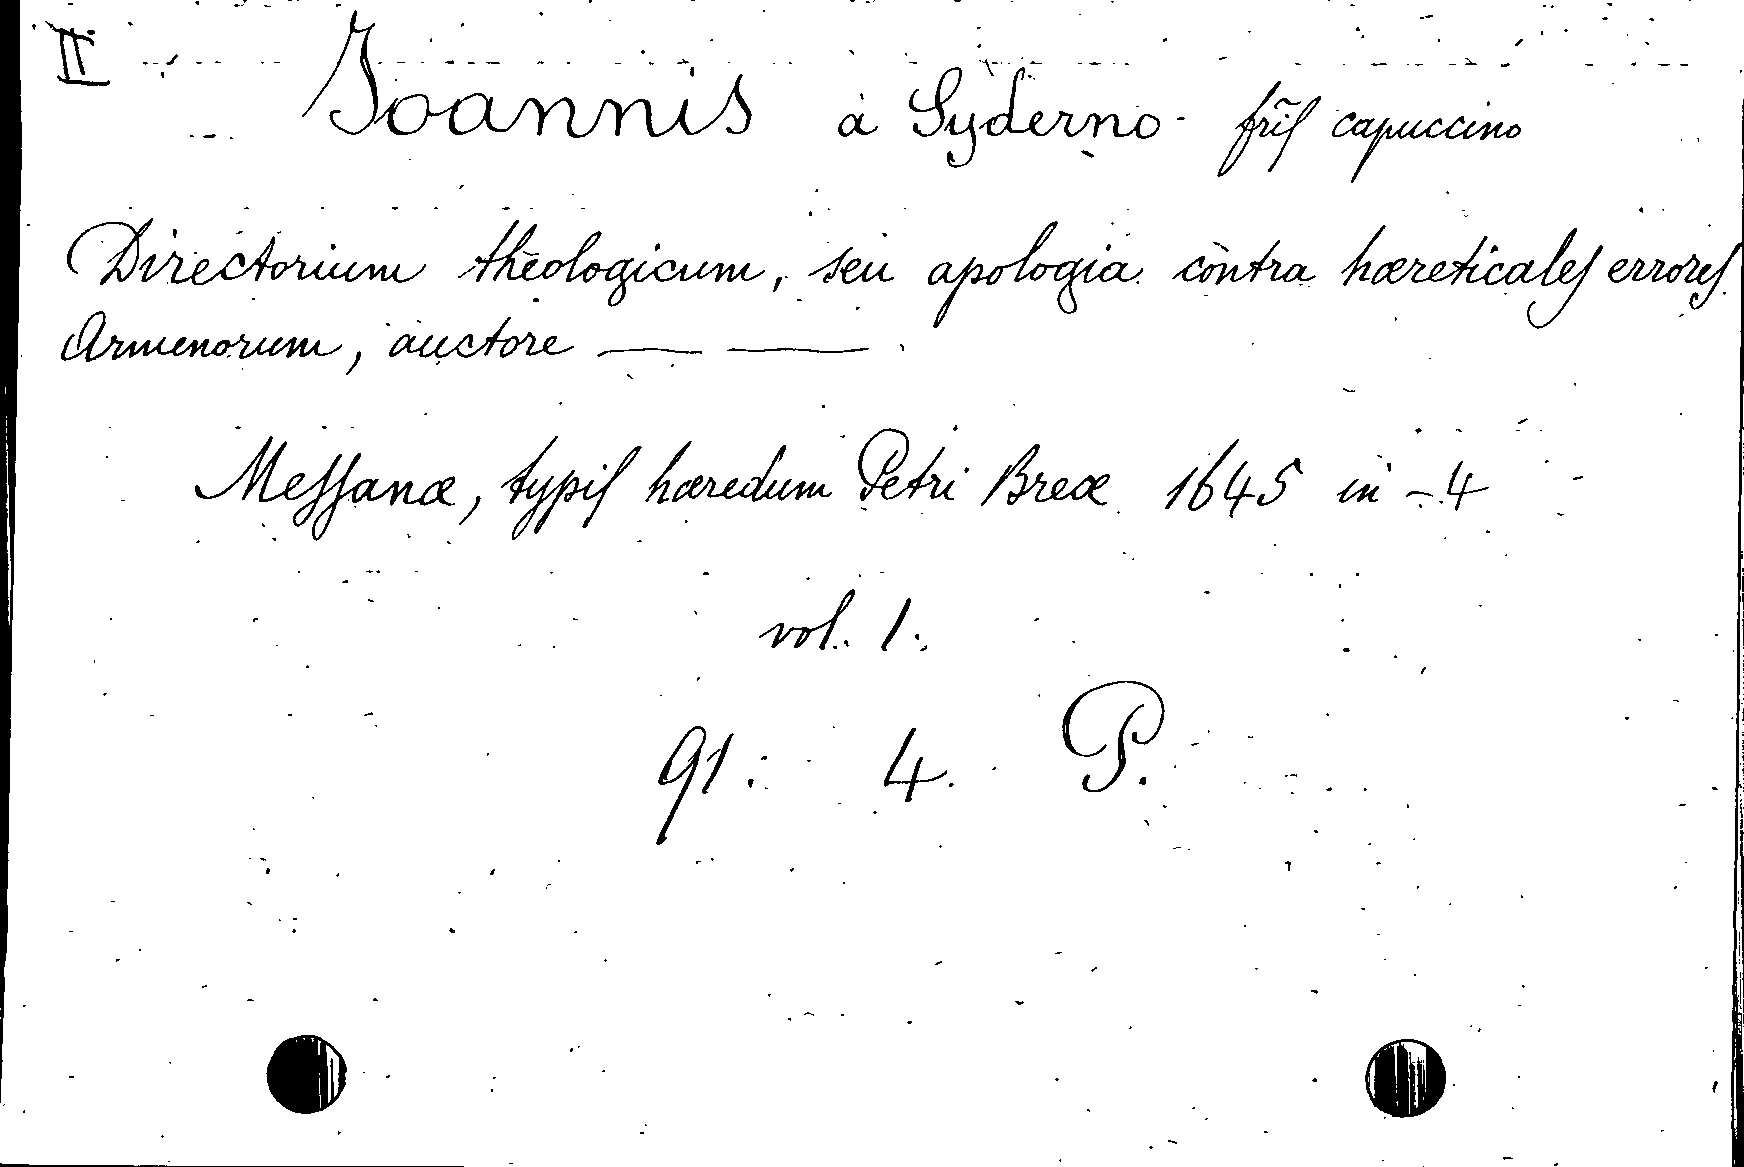 II.
Joannis à Syderno fris̃ capuccino
Directorium theologicum, seu apologia contra hæreticales errores
Armenorum, auctore — —.
Messanæ, typis hæredum Petri Breæ 1645 in-4
vol. 1.
91. 4. P.